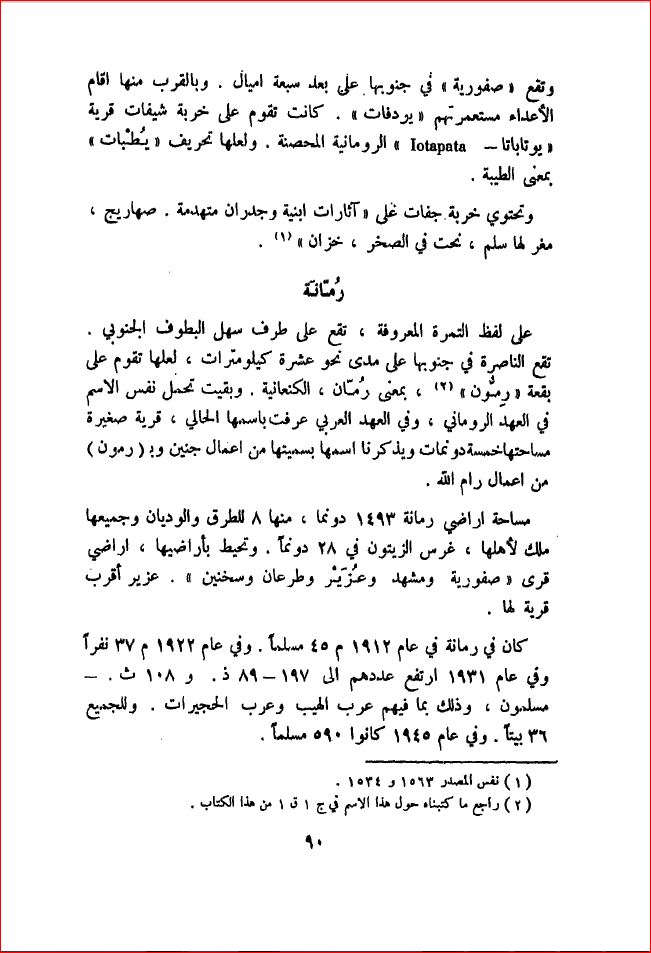 وتقع « صفورية » في جنوبها على بعد سبعة اميال . وبالقرب منها اقام
الأعداء مستعمرتهم « يردفات » . كانت تقوم على خربة شيفات قرية
« يوتاباتا – Iotapata » الرومانية المحصنة . ولعلها تحريف « يُطْبات »
بمعنى الطيبة .
وتحتوي خربة جفات على « آثارات ابنية وجدران متهدمة . صهاريج ،
مغر لها سلم ، نحت في الصخر ، خزان » (١) .
رُمّانَة
على لفظ الثمرة المعروفة ، تقع على طرف سهل البطوف الجنوبي .
تقع الناصرة في جنوبها على مدى نحو عشرة كيلومترات ، لعلها تقوم على
بقعة « رِمّون » (٢) ، بمعنى رُمّان ، الكنعانية . وبقيت تحمل نفس الاسم
في العهد الروماني ، وفي العهد العربي عرفت باسمها الحالي ، قرية صغيرة
مساحتها خمسة دونمات ويذكرنا اسمها بسميتها من اعمال جنين وبـ ( رمون )
من اعمال رام الله .
مساحة اراضي رمانة ١٤٩٣ دونما ، منها ٨ للطرق والوديان وجميعها
ملك لأهلها ، غرس الزيتون في ٢٨ دونماً . وتحيط بأراضيها ، اراضي
قرى « صفورية ومشهد وعُزَيْر وطرعان وسخنين » . عزير أقرب
قرية لها .
كان في رمانة في عام ١٩١٢ م ٤٥ مسلماً . وفي عام ١٩٢٢ م ٣٧ نفراً
وفي عام ١٩٣١ ارتفع عددهم الى ١٩٧ – ٨٩ ذ. و ١٠٨ ث . –
مسلمون ، وذلك بما فيهم عرب الهيب وعرب الحجيرات . وللجميع
٣٦ بيتاً . وفي عام ١٩٤٥ كانوا ٥٩٠ مسلماً .
(١) نفس المصدر ١٥٦٣ و ١٥٣٤ .
(٢) راجع ما كتبناه حول هذا الاسم في ج ١ ق ١ من هذا الكتاب .
٩٠